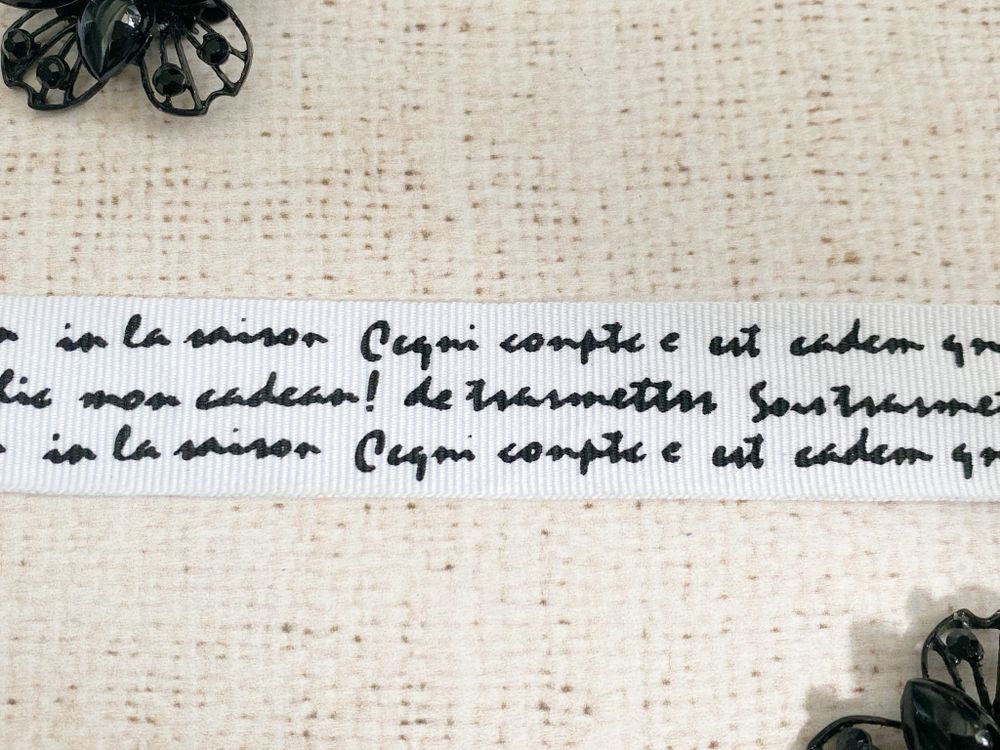 in la saison Ceqni conpte e est cadem qn
lie mon cadean! de trasmettrs Sous trasmet
in la saison Ceqni conpte e est cadem qn